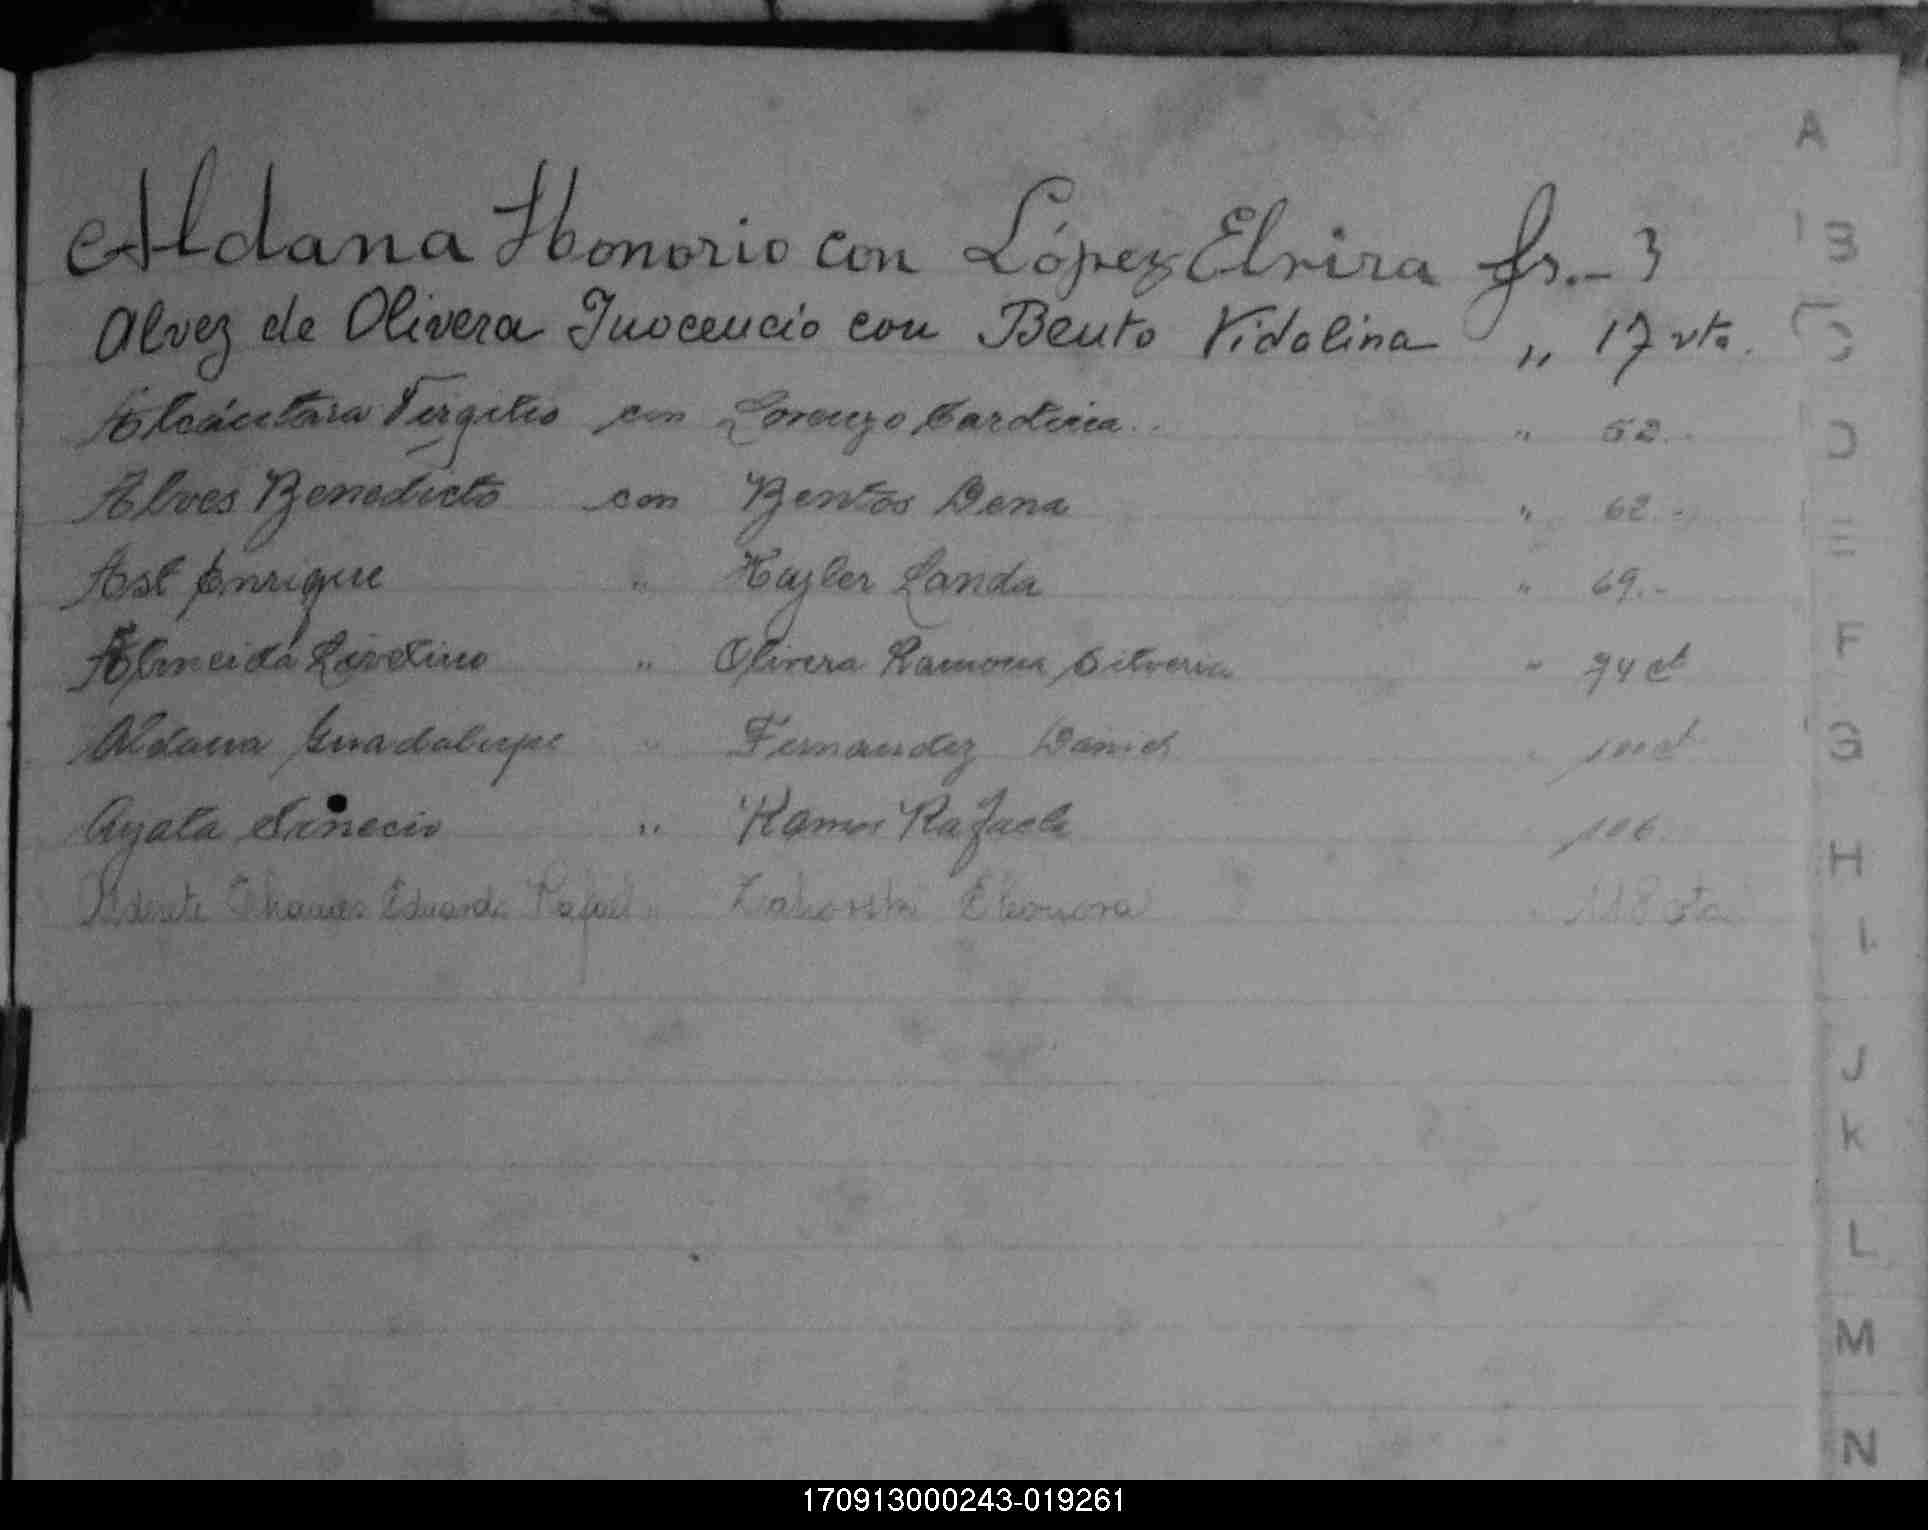 A
Aldana Honorio con López Elvira fs.- 3
B
Alvez de Olivera Inocencio con Bento Vidalina " 17 vta.
C
Alcántara Virgilio con Lorenzo Carolina.. " 52.-
D
Alves Benedicto con Bentos Dena " 62.-
E
Ast Enrique " Hayler Landa " 69.-
F
Almeida " Olivera Ramona Silveria " 74
Aldana Guadalupe " Fernandez Daniel " 100
G
Ayala " Ramos Rafaela " 106
H
Eduardo Rafael " Eleonora " 118 vta
I
J
K
L
M
N
170913000243-019261